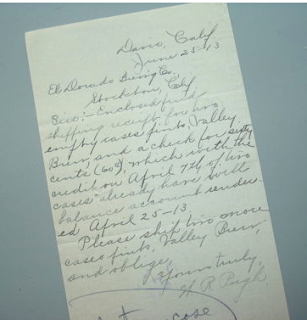 Davis, Calif
June 25-13
El Dorado Brewing Co.,
Stockton, Clf
Sirs:- Enclosed find
shipping receipt for two
empty cases pints, Valley
Brew, and a check for sixty
cents (60¢), which with the
credit on April 7th of two
cases already have will
balance account render-
ed April 25-13.
Please ship two more
cases pints, Valley Brew,
and oblige,
Yours truly,
W R Pugh
case